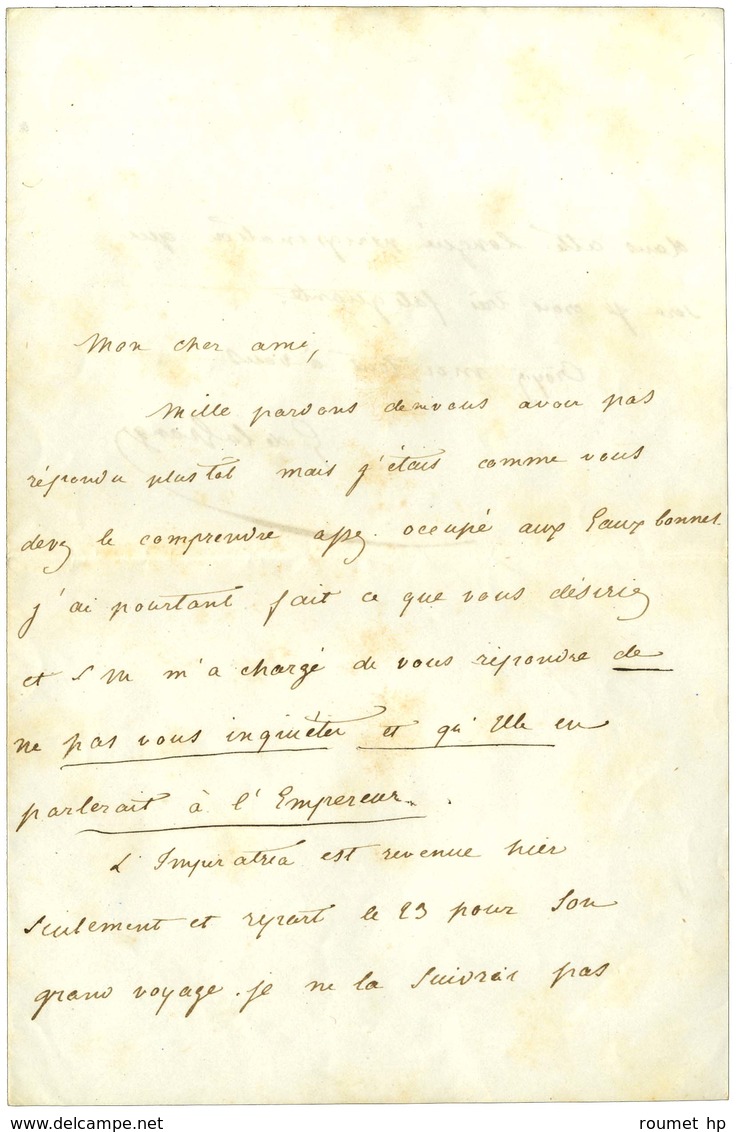 Mon cher ami,
Mille pardons de ne vous avoir pas
répondu plustôt mais j'étais comme vous
devez le comprendre assez occupé aux Eaux bonnes.
j'ai pourtant fait ce que vous désiriez
et S M m'a chargé de vous répondre de
ne pas vous inquiéter et qu'Elle en
parlerait à l'Empereur.
L'Impératrice est revenue hier
seulement et repart le 23 pour son
grand voyage. je ne la suivrai pas
roumet hp